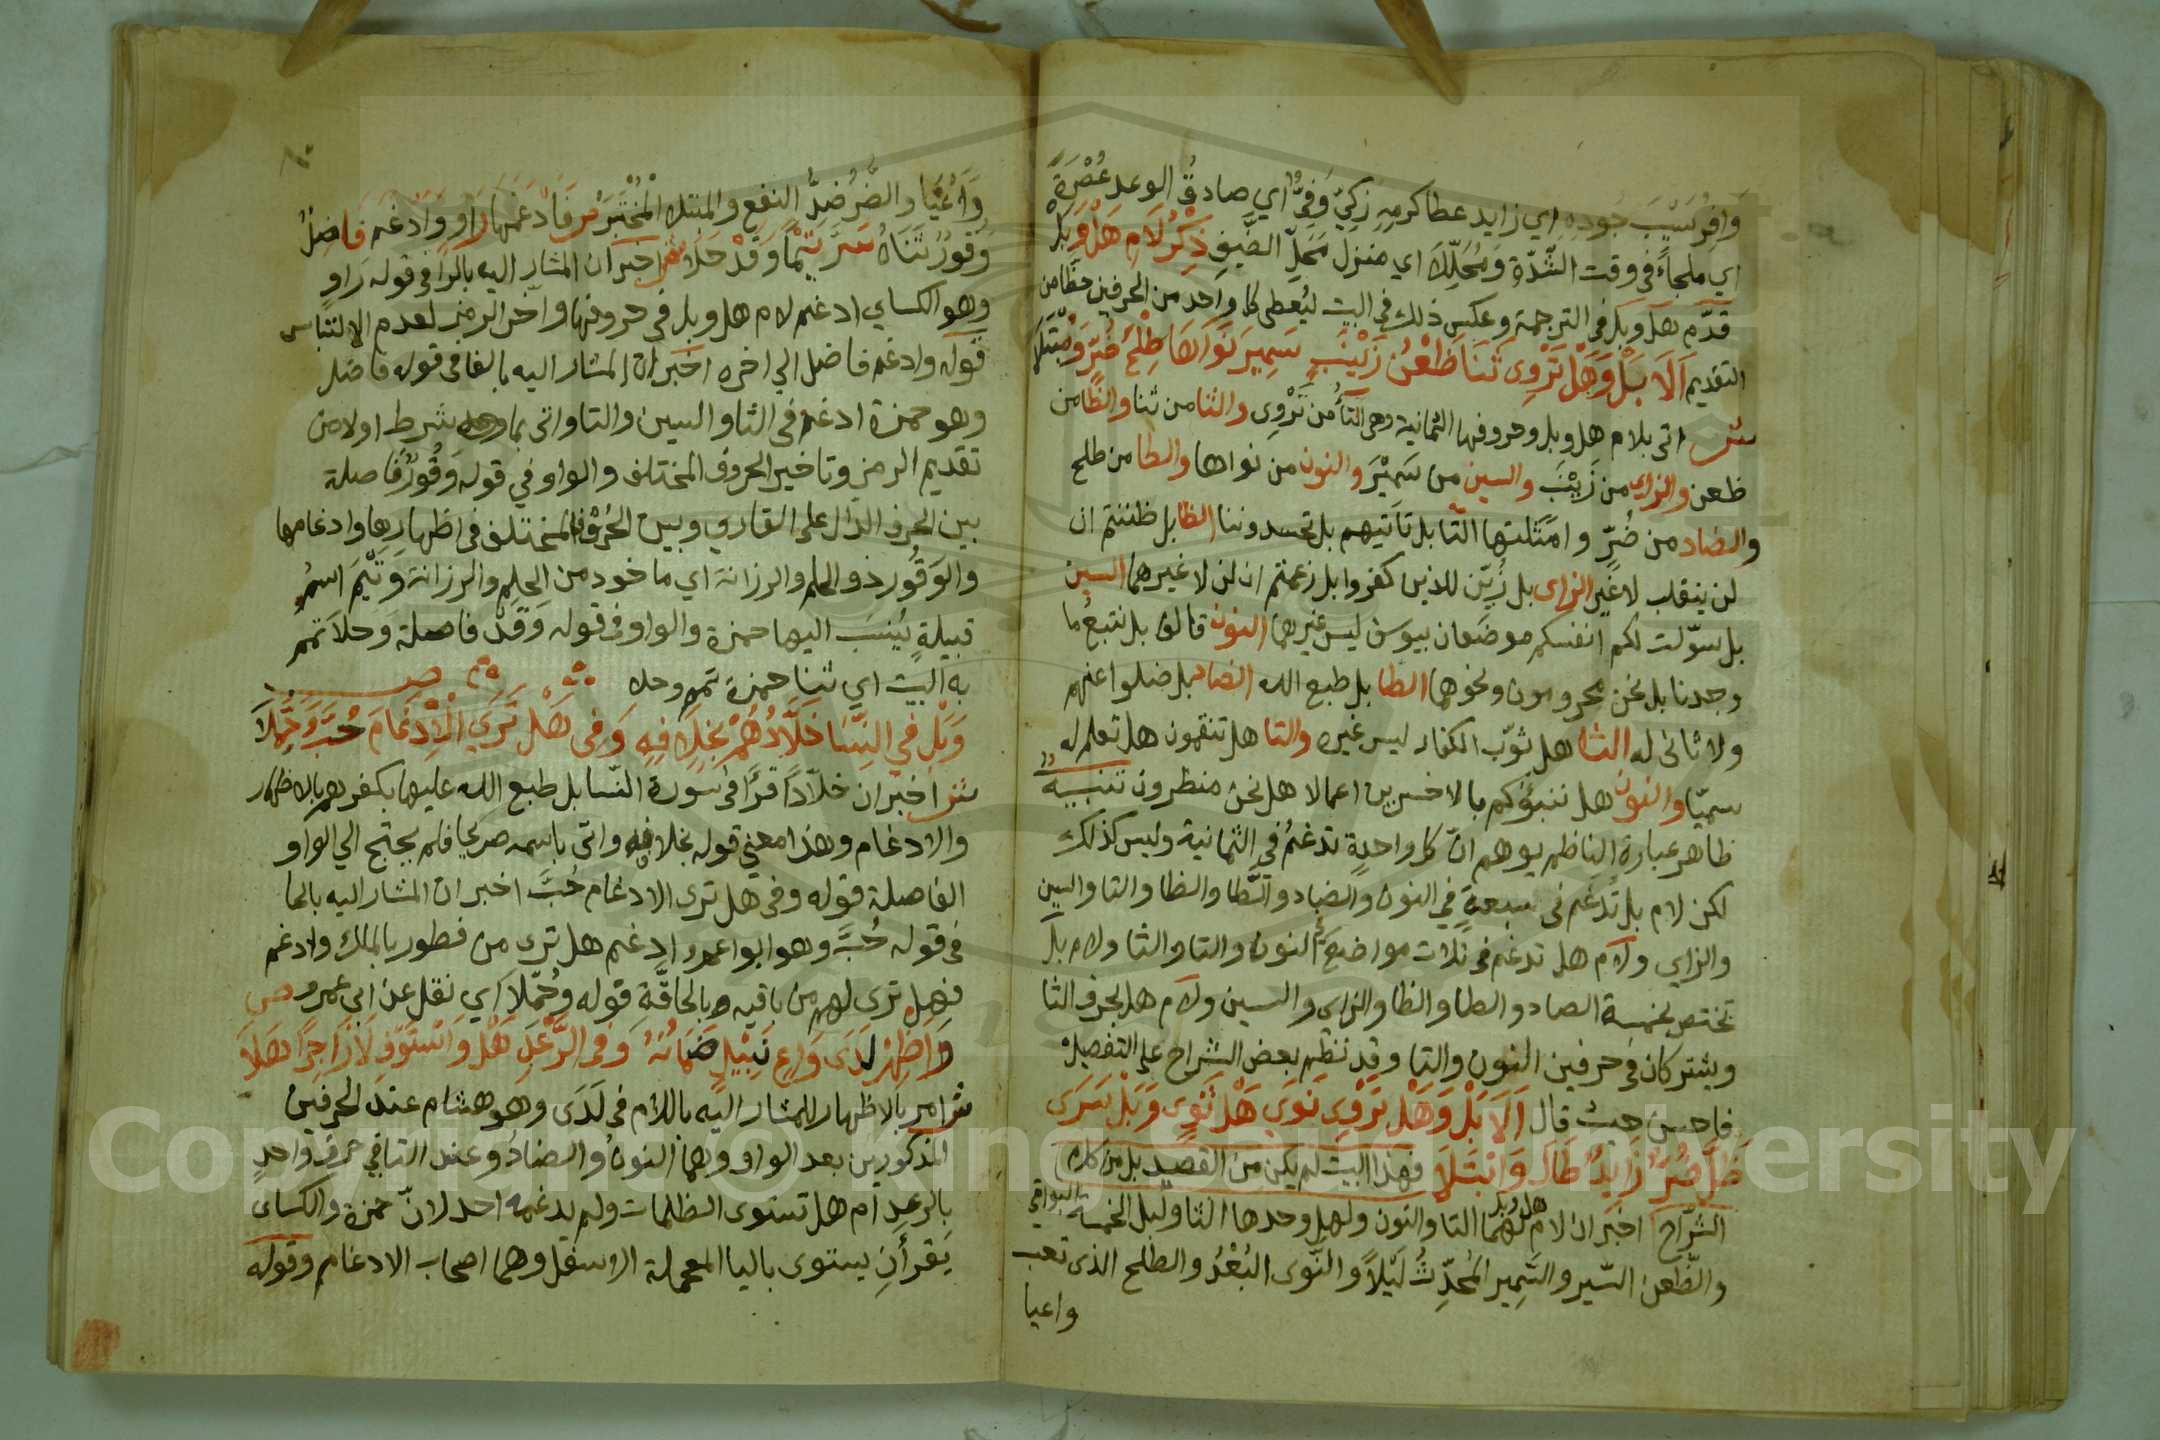 وَافِرُ سَيْبَ جُودِهِ اي زايد عطا كرمِهِ زَكِيّ وَفِيٌّ اي صادقُ الوعد عُصْرَةً
اي ملجاءً في وقت الشّدّة وَمُحَلِّلَ اي منزل مَحَلِّ الضَّيفِ ذِكْرُ لَامِ هَلْ وَبَلْ
قدّم هل وبل في الترجمة وعكس ذلك في البيت ليُعطى كل واحد من الحرفين حظا من
التقديم اَلَا بَلْ وَهَلْ تَرْوِى ثَنَا ظَعْنِ زَيْنَبٍ سَمِيرَ نَوَاهَا طِلْحَ ضُرٍّ وَمُبْتَلَا
ش اتى بلام هل وبل وحروفها الثمانية وهى التآ من تَرْوِى والثا من ثنا والظا من
ظعن والزاي من زَيْنَبَ والسين من سَمِيْرَ والنون من نواها والطا من طلح
والضاد من ضُرٍّ وامثلتها التا بل تاتيهم بل تحسدوننا الظا بل ظننتم ان
لن ينقلب لا غير الزاى بل زُيّن للذين كفروا بل زعمتم ان لن لا غيرهما السين
بل سوّلت لكم انفسكم موضعان بيوسف ليس غيرهما النون قالوا بل نتبعُ ما
وجدنا بل نحن محرومون ونحوهما الطا بل طبع الله الضاد بل ضلوا عنهم
ولا ثانى له الثا هل ثوّب الكفار ليس غيره والتا هل تنقمون هل تعلم له
سميّا والنون هل ننبؤكم بالاخسرين اعمالا هل نحن منظرون تنبيه
ظاهر عبارة الناظم يوهم انّ كل واحدة تدغمُ في الثمانية وليس كذلك
لكن لام بل تُدغم فى سبعة في النون والضاد والطا والظا والتا والسين
والزاي ولام هل تدغم فى ثلاث مواضع النون والتا والثا ولام بل
تختص بخمسة الضاد والطا والظا والزاى والسين ولام هل بحرف الثا
ويشتركان فى حرفين النون والتا وقد نظم بعض الشراح على التفصيل
فاحسن حيث قال اَلَا بَلْ وَهَلْ تَرْوِى نَوَى هَلْ ثَوَى وَبَلْ سَرَى
ظِلَّ ضُرَّ زَايِدٌ طَالَ وَابْتَلَا فهذا البيت لم يكن من القصيد بل من كلام
الشرّاح اخبر ان لام هل وبل لهما التا والنون ولهل وحدها الثا ولبل الخمسة البواقي
والظّعن السّير والسَّمِير المُحدِّثُ لَيْلاً والنّوى البُعْدُ والطلح الذى تعب
واعيا
وَاَعْيَا والضُّر ضِدُّ النفع والمبتلا المُخْتَبَرْ ص فَادغمها رَاوٍ وَادْغَمَ فَاضِلٌ
وَقُورٌ ثَنَاهُ سَرَّ تَيْمًا وَقَدْ حَلَا ش اخبر ان المشار اليه بالرا فى قوله رَاوٍ
وهو الكساي ادغم لام هل وبل فى حروفها واخّر الرمز لعدم الالتباس
قوله وادغم فاضل الى اخره اخبر ان المشار اليه بالفا فى قوله فاضل
وهو حمزة ادغم فى الثا والسين والتا واتى بما وعد بشرط اولا من
تقديم الرمز وتاخير الحروف المختلف والواو في قوله وَقُورٌ فاصلة
بين الحرف الدّال على القاري وبين الحُرُوف المختلف فى اظهارها وادغامها
والوَقُور ذو الحلم والرزانة اي ماخوذ من الحلم والرزانة وَتَيْمَ اسمُ
قبيلةٍ يُنسَبُ اليها حمزة والواو فى قوله وَقَدْ فاصلة وَحلَا تمم
به البيت اي ثنا حمزة تمم وحلا ص
وَبَلْ فِي النِّسَا خَلَّادُهُمْ بِخِلَافِهِ وَفِى هَلْ تَرَى الْاِدْغَامَ حُبَّ وَحُمِّلَا
ش اخبر ان خلّاداً قرَأ فى سورة النّسا بل طبع الله عليها بكفرهم بالاظهار
والادغام وهذا معنى قوله بخلافه واتى باسمه صريحا فلم يحتج الي الواو
الفاصلة قوله وفى هل ترى الادغام حُبَّ اخبر ان المشار اليه بالحا
فى قوله حُبَّ وهو ابو اعمرو ادغم هل ترى من فطور بالملك وادغم
فهل ترى لهم من باقيه بالحاقّة قوله وحُمّلا اي نقل عن ابى عمرو ص
وَاَظْهِرْ لَدَى وَاعٍ نَبِيْلٍ ضَمَانُهُ وَفى الرَّعْدِ هَلْ وَاسْتَوْفِ لَا زَاجِرًا هَلَا
ش امر بالاظهار للمشار اليه باللام فى لَدَى وهو هشام عند الحرفين
المذكورين بعد الواو وهما النون والضاد وعند التا في حرف واحد
بالرعد ام هل تستوى الظلمات ولم يدغمه احد لانّ حمزة والكساى
يَقرأَنِ يستوى باليا المعجلة الاسفل وهما اصحاب الادغام وقوله